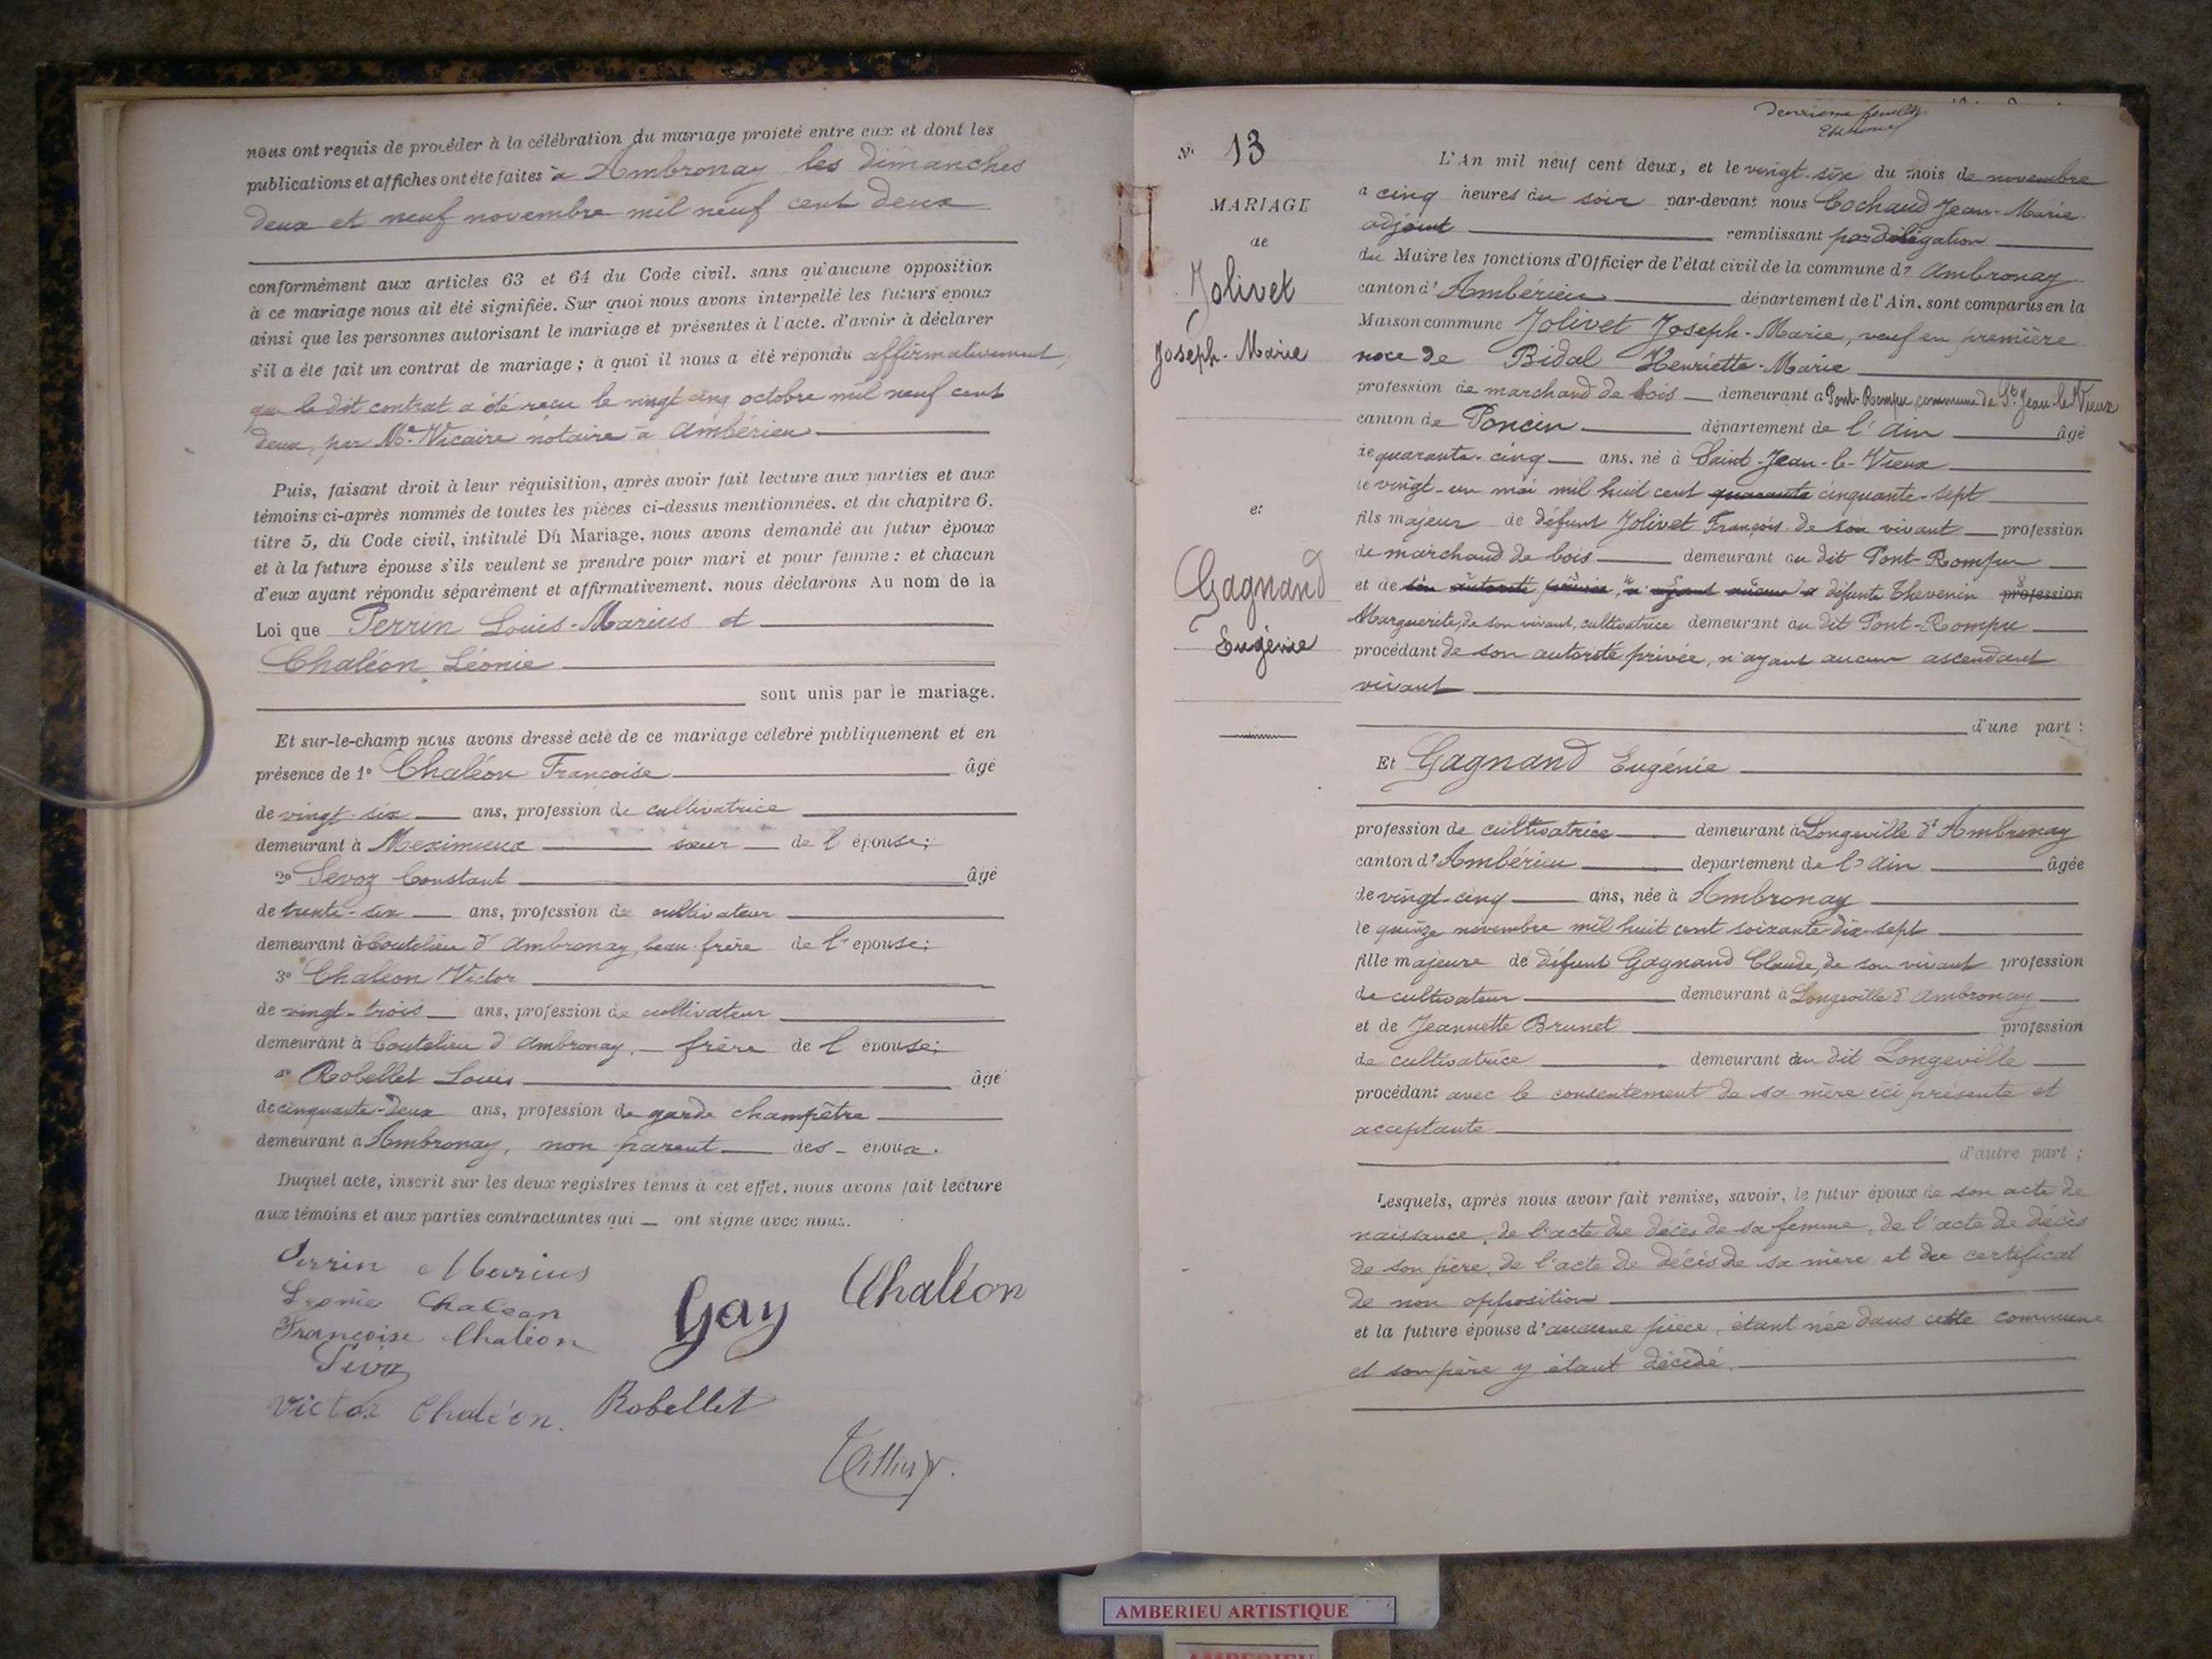 nous ont requis de procéder à la célébration du mariage projeté entre eux et dont les
publications et affiches ont été faites à Ambronay les dimanches
deux et neuf novembre mil neuf cent deux
conformément aux articles 63 et 64 du Code civil. sans qu'aucune opposition
à ce mariage nous ait été signifiée. Sur quoi nous avons interpellé les futurs époux
ainsi que les personnes autorisant le mariage et présentes à l'acte. d'avoir à déclarer
s'il a été fait un contrat de mariage ; à quoi il nous a été répondu affirmativement,
que le dit contrat a été reçu le vingt cinq octobre mil neuf cent
deux, par Me Vicaire notaire à Ambérieu
Puis, faisant droit à leur réquisition, après avoir fait lecture aux parties et aux
témoins ci-après nommés de toutes les pièces ci-dessus mentionnées. et du chapitre 6.
titre 5, du Code civil, intitulé Du Mariage, nous avons demandé au futur époux
et à la future épouse s'ils veulent se prendre pour mari et pour femme : et chacun
d'eux ayant répondu séparément et affirmativement. nous déclarons Au nom de la
Loi que Perrin Louis-Marius et
Chaléon Léonie
sont unis par le mariage.
Et sur-le-champ nous avons dressé acte de ce mariage célébré publiquement et en
présence de 1° Chaléon Françoise âgé
de vingt-six ans, profession de cultivatrice
demeurant à Meximieux sœur de l'épouse;
2° Sevoz Constant âgé
de trente-six ans, profession de cultivateur
demeurant à Coutelieu d'Ambronay, beau-frère de l'épouse;
3° Chaléon Victor
de vingt-trois ans, profession de cultivateur
demeurant à Coutelieu d'Ambronay, frère de l'épouse;
4° Robellet Louis âgé
de cinquante-deux ans, profession de garde champêtre
demeurant à Ambronay, non parent des époux.
Duquel acte, inscrit sur les deux registres tenus à cet effet, nous avons fait lecture
aux témoins et aux parties contractantes qui ont signé avec nous.
Perrin Marius
Léonie Chaléon
Gay Chaléon
Françoise Chaléon
Victor Chaléon. Robellet
Deuxième feuillet
N° 13
MARIAGE
de
Jolivet
Joseph-Marie
et
Gagnand
Eugénie
L'An mil neuf cent deux, et le vingt-six du mois de novembre
à cinq heures du soir par-devant nous Cochaud Jean-Marie
adjoint remplissant par délégation
du Maire les fonctions d'Officier de l'état civil de la commune d'Ambronay
canton d'Ambérieu département de l'Ain, sont comparus en la
Maison commune Jolivet Joseph-Marie, veuf en première
noce de Bidal Henriette-Marie
profession de marchand de bois demeurant à Pont-Rompu commune de St Jean-le-Vieux
canton de Poncin département de l'Ain âgé
de quarante-cinq ans, né à Saint-Jean-le-Vieux
le vingt-un mai mil huit cent quarante cinquante-sept
fils majeur de défunt Jolivet François de son vivant profession
de marchand de bois demeurant au dit Pont-Rompu
et de son autorité privée, n'ayant aucun a défunte Thevenin profession
Marguerite, de son vivant, cultivatrice demeurant au dit Pont-Rompu
procédant de son autorité privée, n'ayant aucun ascendant
vivant
d'une part :
Et Gagnand Eugénie
profession de cultivatrice demeurant à Longeville d'Ambronay
canton d'Ambérieu département de l'Ain âgée
de vingt-cinq ans, née à Ambronay
le quinze novembre mil huit cent soixante-dix-sept
fille majeure de défunt Gagnand Claude, de son vivant profession
de cultivateur demeurant à Longeville d'Ambronay
et de Jeannette Brunet profession
de cultivatrice demeurant au dit Longeville
procédant avec le consentement de sa mère ici présente et
acceptante
d'autre part ;
Lesquels, après nous avoir fait remise, savoir, le futur époux de son acte de
naissance, de l'acte de décès de sa femme, de l'acte de décès
de son père, de l'acte de décès de sa mère et du certificat
de non opposition
et la future épouse d'aucune pièce, étant née dans cette commune
et son père y étant décédé.
AMBERIEU ARTISTIQUE
AMBERIEU